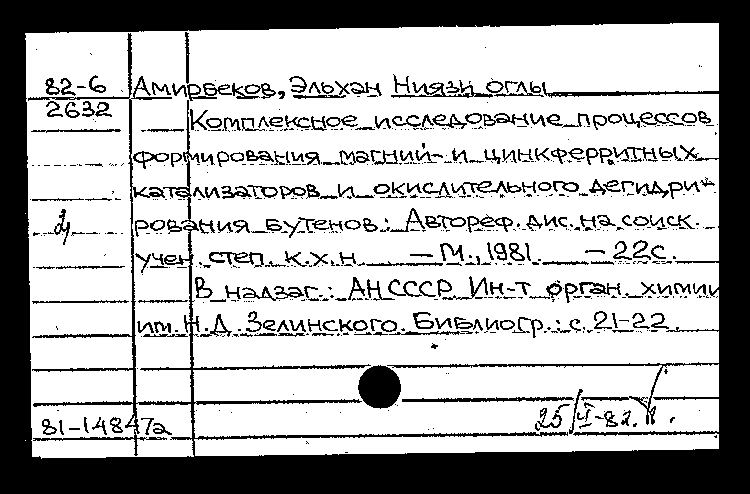 82-6 Амирбеков, Эльхан Ниязи оглы
2632 Комплексное исследование процессов
формирования магний- и цинкферритных
катализаторов и окислительного дегидри-
рования бутенов: Автореф. дис. на соиск.
учен. степ. к.х.н. — М., 1981. — 22с.
В надзаг.: АН СССР. Ин-т орган. химии
им. Н.Д. Зелинского. Библиогр.: с. 21-22.
81-14847а